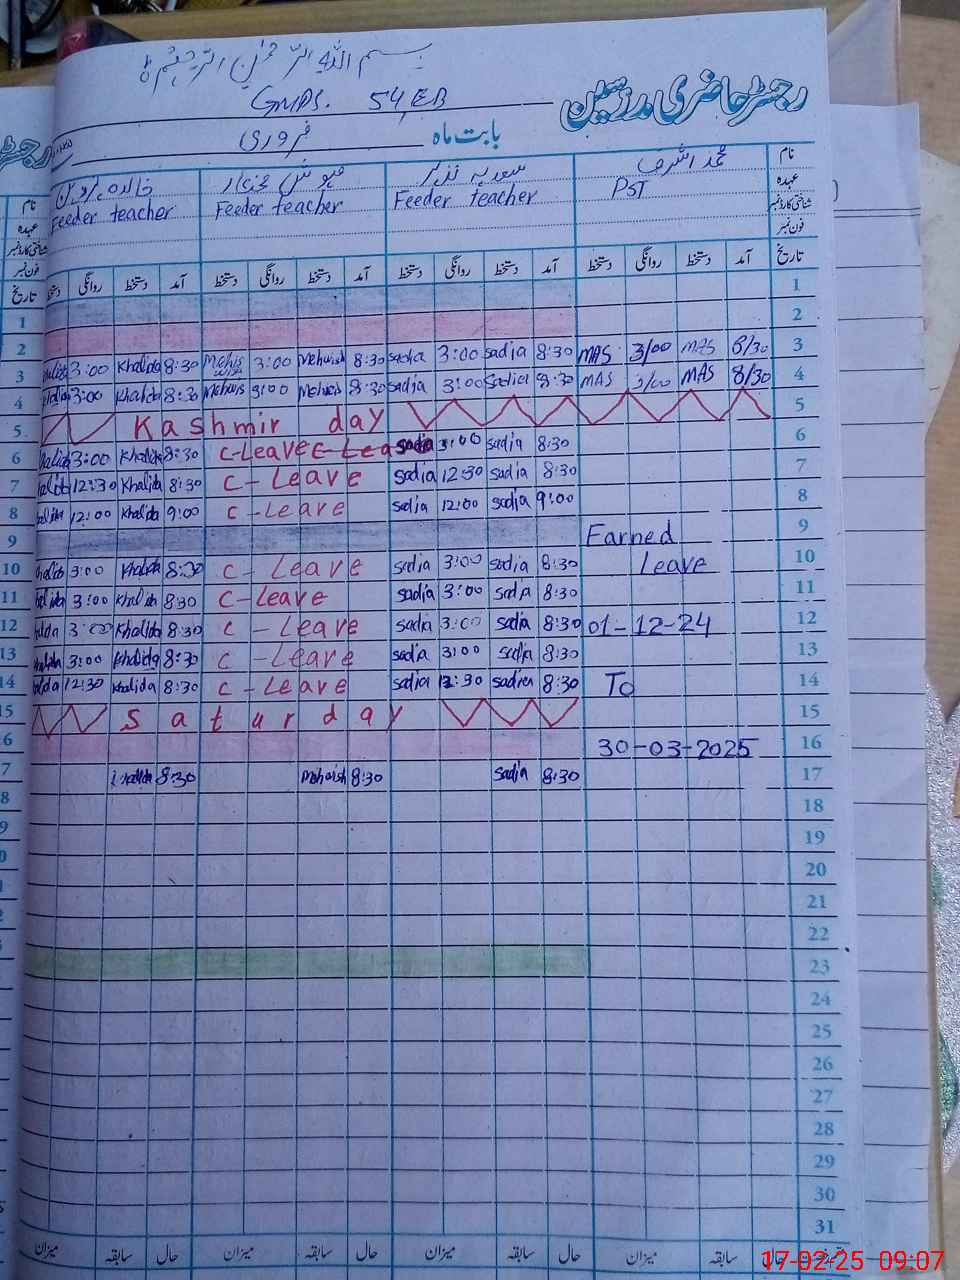 بسم اللہ الرحمٰن الرحیم
GMPS. 54 EB
رجسٹر حاضری مدرسین
بابت ماہ فروری
نام محمد اشرف سعدیہ نذیر مہوش مختار خالدہ پروین
عہدہ PST Feeder teacher Feeder teacher Feeder teacher
شناختی کارڈ نمبر
فون نمبر
تاریخ آمد دستخط روانگی دستخط آمد دستخط روانگی دستخط آمد دستخط روانگی دستخط آمد دستخط روانگی
1
2
3:00 Khalida 8:30 3:00 Mehwish 8:30 sadia 3:00 sadia 8:30 MAS 3/00 MAS 8/30 3
3:00 Khalida 8:30 Mehwis 3:00 Mehwis 8:30 sadia 3:00 sadia 8:30 MAS 3/00 MAS 8/30 4
Kashmir day 5
3:00 Khalida 8:30 C-Leave C-Lea sadia 3:00 sadia 8:30 6
12:30 Khalida 8:30 C-Leave sadia 12:30 sadia 8:30 7
12:00 Khalida 9:00 C-Leave sadia 12:00 sadia 9:00 8
Earned 9
3:00 Khalida 8:30 C-Leave sadia 3:00 sadia 8:30 Leave 10
3:00 Khalida 8:30 C-Leave sadia 3:00 sadia 8:30 11
3:00 Khalida 8:30 C-Leave sadia 3:00 sadia 8:30 01-12-24 12
3:00 Khalida 8:30 C-Leave sadia 3:00 sadia 8:30 13
12:30 Khalida 8:30 C-Leave sadia 12:30 sadia 8:30 To 14
Saturday 15
30-03-2025 16
8:30 Mehwish 8:30 sadia 8:30 17
18
19
20
21
22
23
24
25
26
27
28
29
30
31
حال سابقہ میزان حال سابقہ میزان حال سابقہ میزان حال سابقہ میزان
17-02-25 09:07